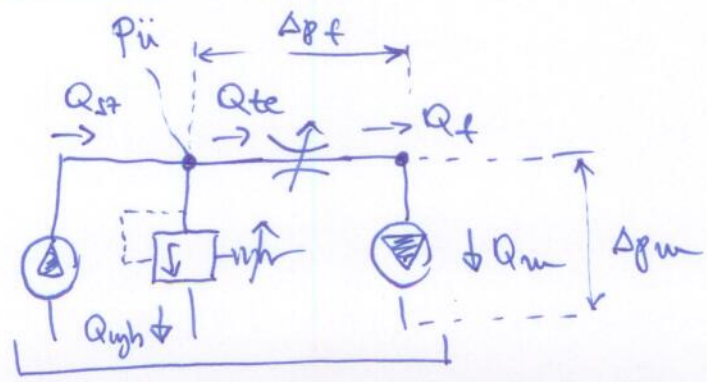 pü
Δpf
Qsz
Qte
Qf
Qm
Δpm
Qnyh